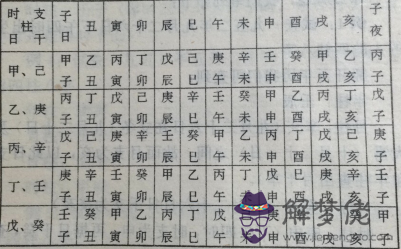 时 支
柱 干
日
子日 丑 寅 卯 辰 巳 午 未 申 酉 戌 亥 子夜
甲、己 甲子 乙丑 丙寅 丁卯 戊辰 己巳 庚午 辛未 壬申 癸酉 甲戌 乙亥 丙子
乙、庚 丙子 丁丑 戊寅 己卯 庚辰 辛巳 壬午 癸未 甲申 乙酉 丙戌 丁亥 戊子
丙、辛 戊子 己丑 庚寅 辛卯 壬辰 癸巳 甲午 乙未 丙申 丁酉 戊戌 己亥 庚子
丁、壬 庚子 辛丑 壬寅 癸卯 甲辰 乙巳 丙午 丁未 戊申 己酉 庚戌 辛亥 壬子
戊、癸 壬子 癸丑 甲寅 乙卯 丙辰 丁巳 甲子
解梦佬